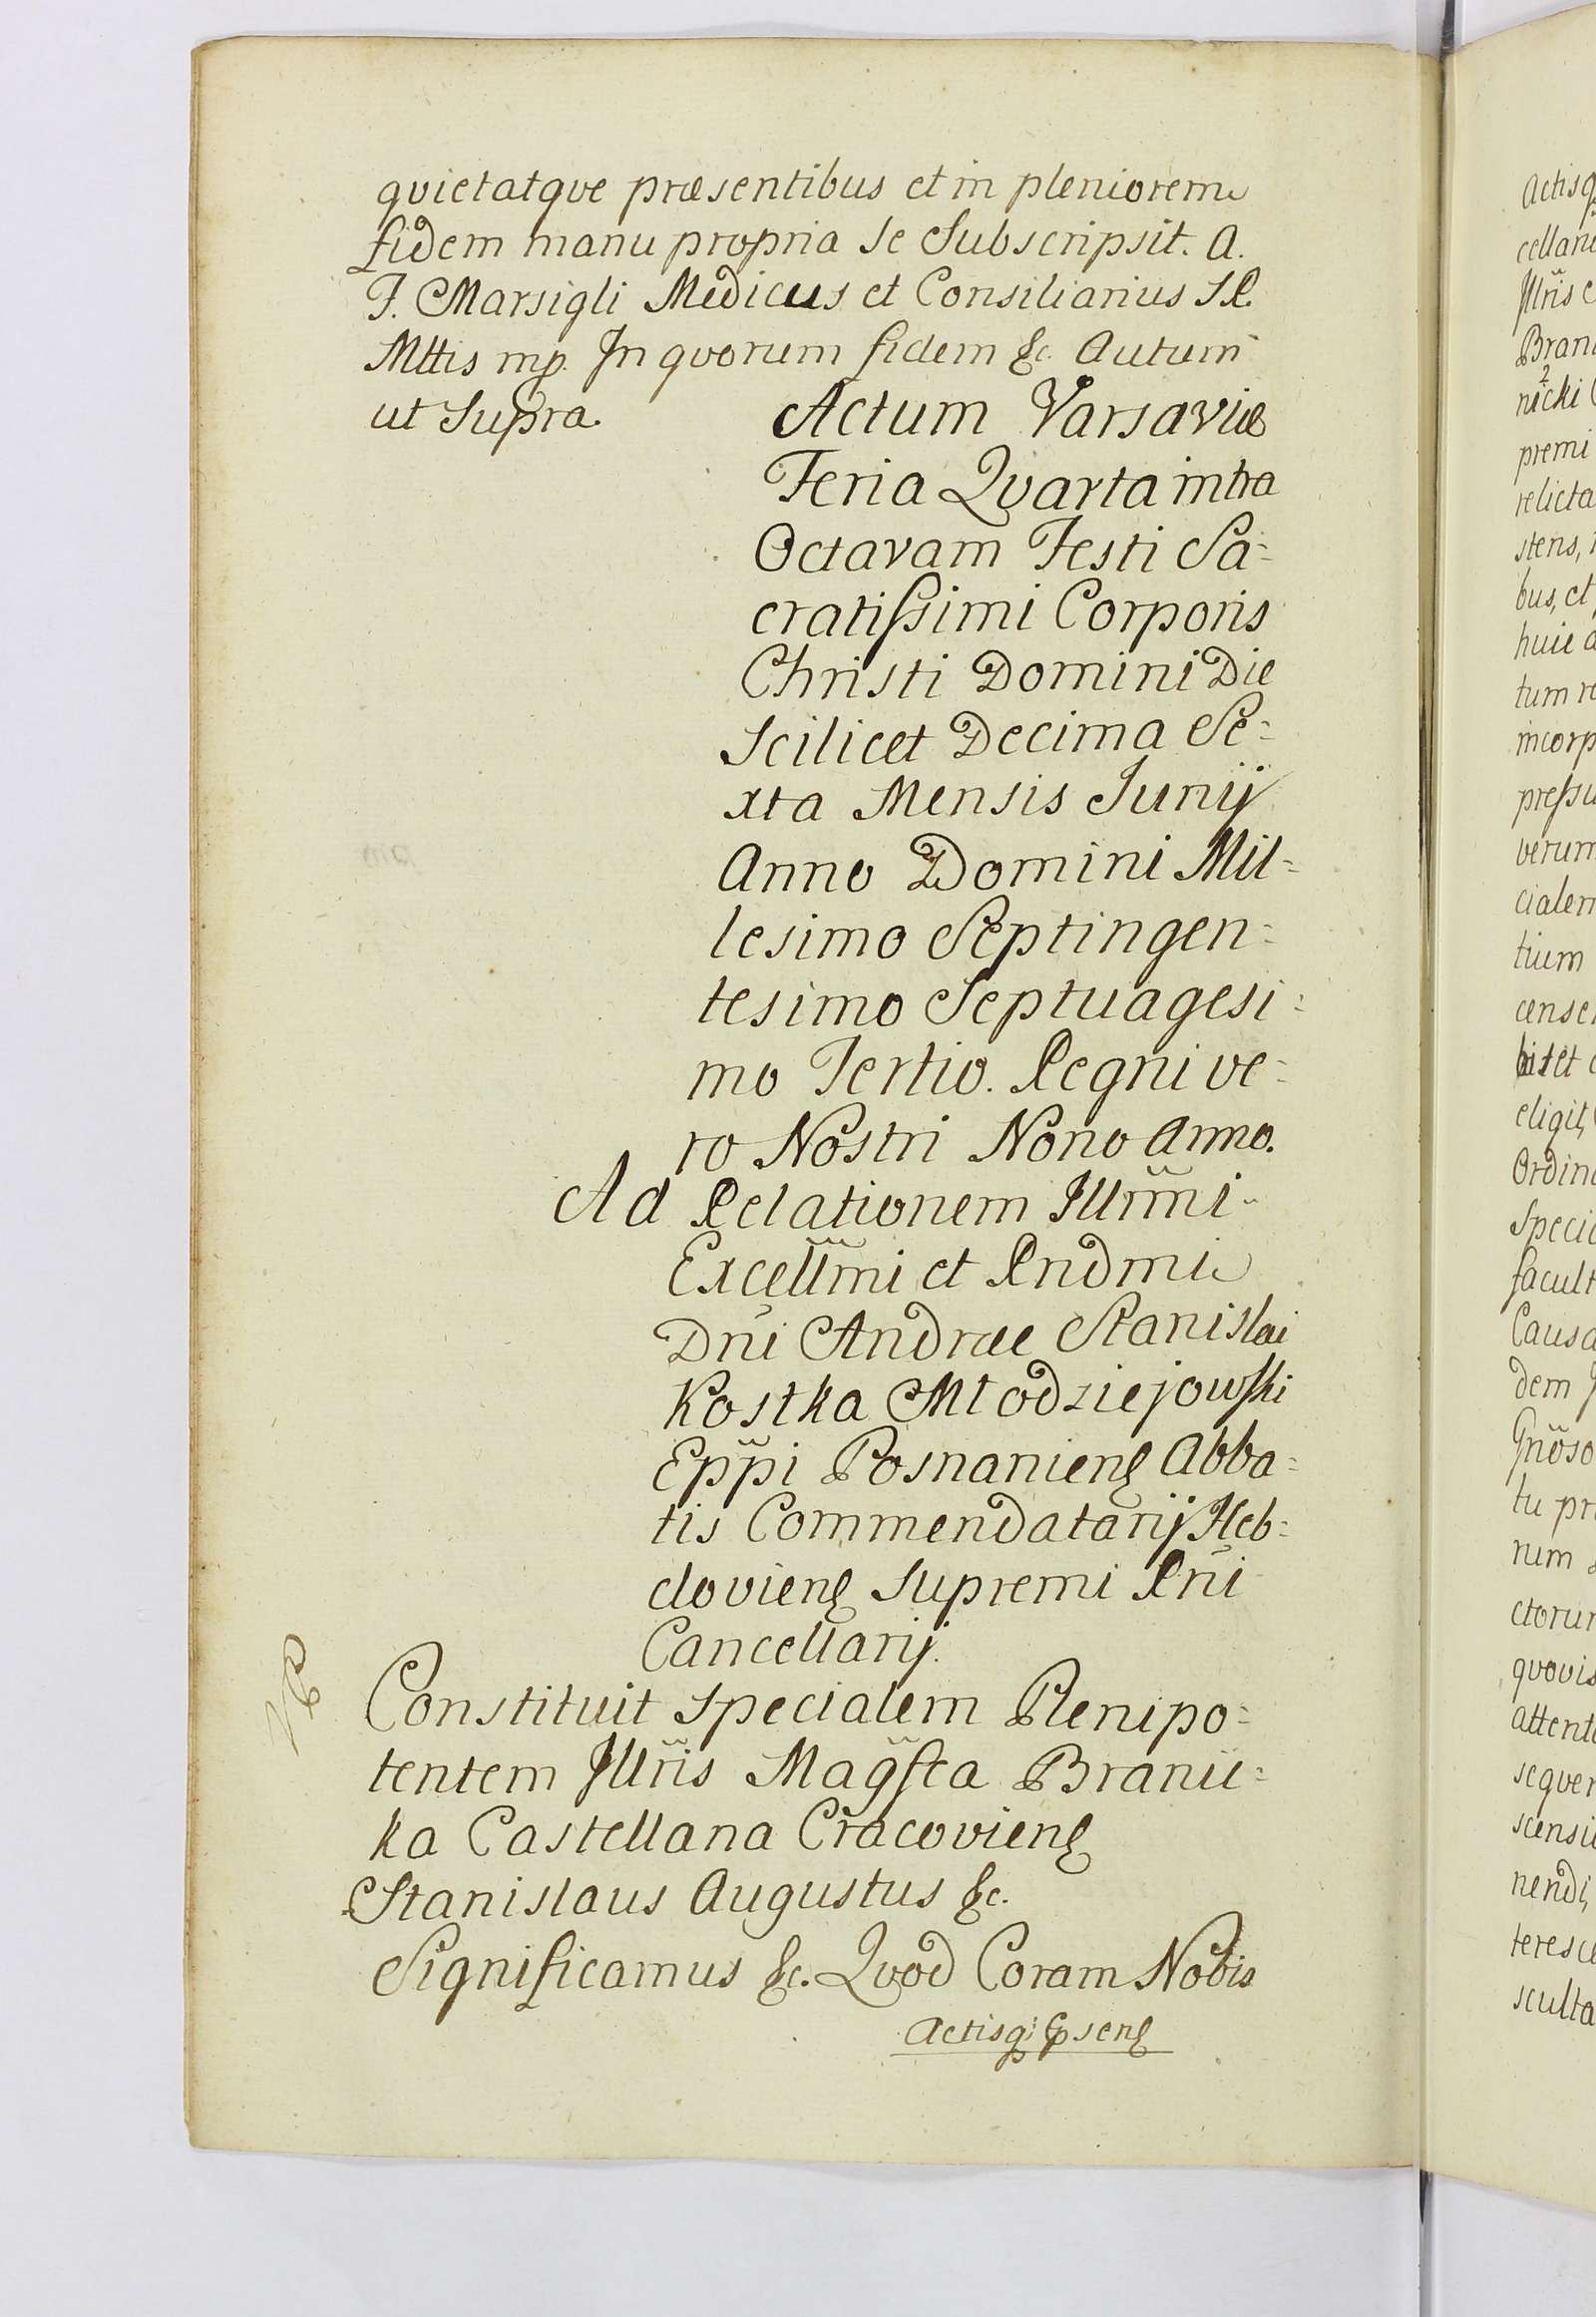 qvietatqve præsentibus et in pleniorem
fidem manu propria se Subscripsit. A.
J. Marsigli Medicus et Consiliarius S. R.
Mttis mp. In qvorum fidem &c. Autum
ut Supra.
Actum Varsaviæ
Feria Qvarta intra
Octavam Festi Sa=
cratissimi Corporis
Christi Domini Die
Scilicet Decima Se=
xta Mensis Junij
Anno Domini Mil=
lesimo Septingen=
tesimo Septuagesi=
mo Tertio. Regni ve=
ro Nostri Nono Anno.
Ad Relationem Illrmi
Excellmi et Rndmi
Dni Andræe Stanislai
Kostka Młodziejowski
Eppi Posnanien̄ Abba=
tis Commendatarij Heb=
dovien̄ Supremi Rni
Cancellarij.
Constituit Specialem Plenipo=
tentem Jllris Magsta Branic=
ka Castellana Cracovien̄
Stanislaus Augustus &c.
Significamus &c. Qvod Coram Nobis
Actisq;
Actisq
cellari
Jllris
Bran
nicki
premi
relicta
stens,
bus, et
huic a
tum re
incorp
pressu
verum
cialem
tium
censer
eligit,
Ordin
Speci
facult
Causa
dem
Gnoso
tu pr
rum
ctorum
qvovis
attent
seqver
scensi
nendi,
teresce
sculta